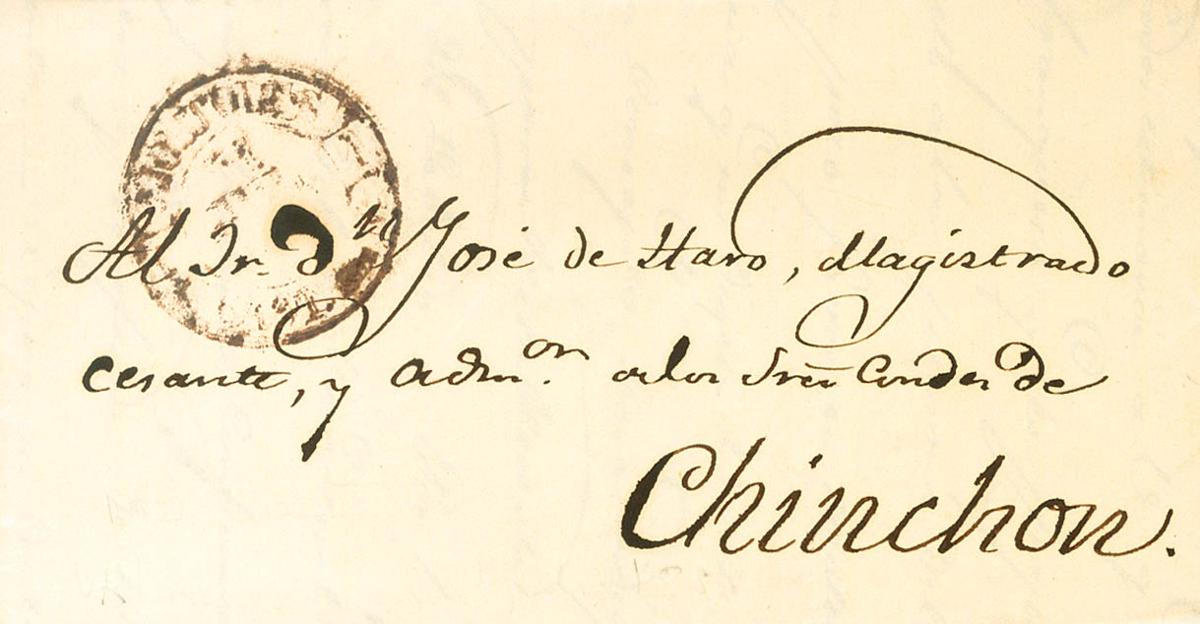 Al Sr. dn José de Haro, Magistrado
cesante, y admon. de los Sres Condes de
Chinchon.